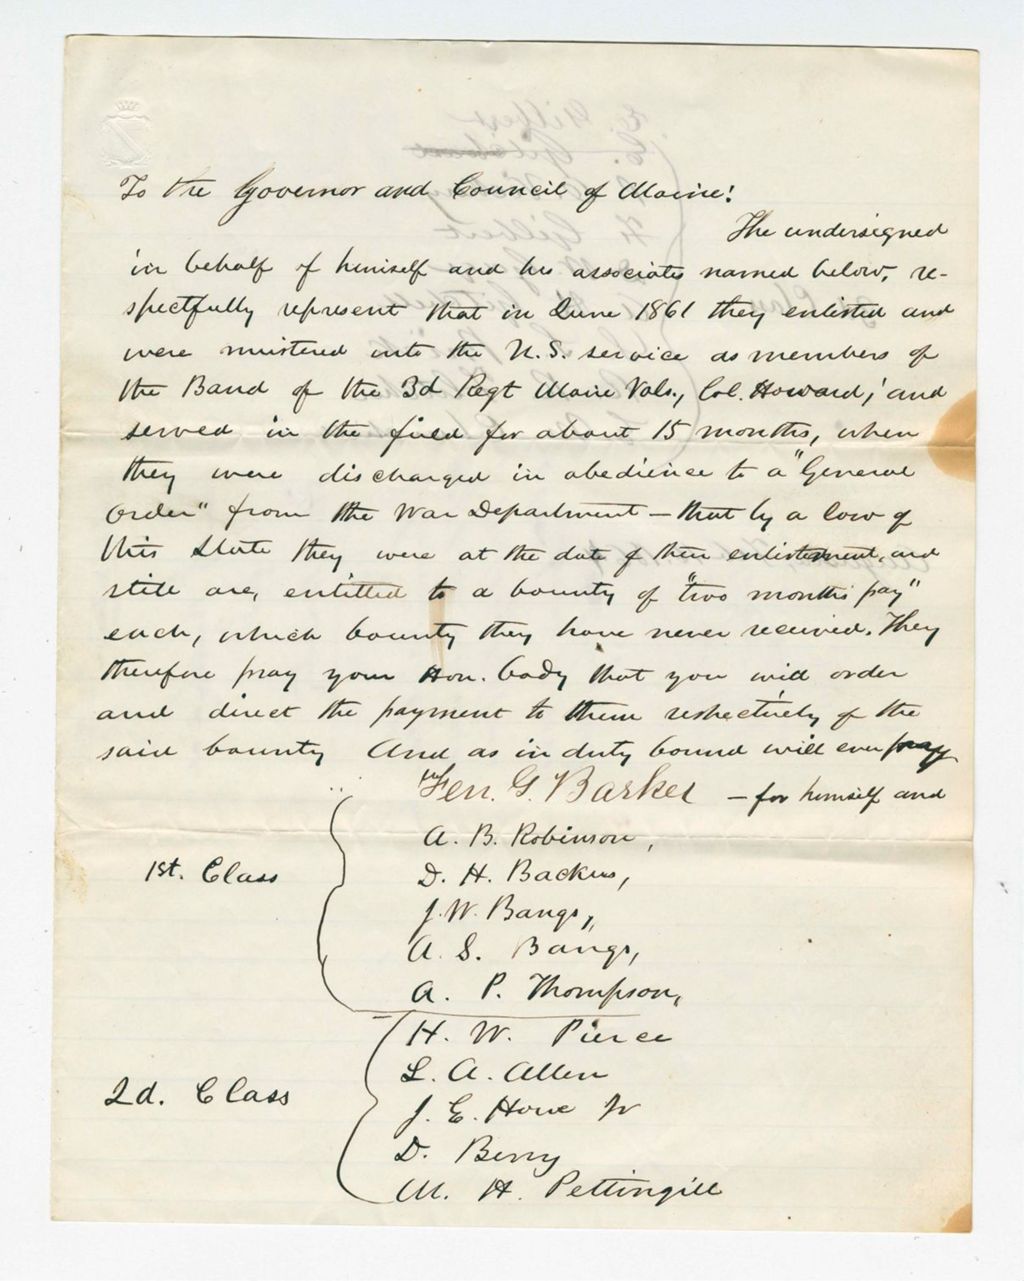 To the Governor and Council of Maine!
The undersigned
in behalf of himself and his associates named below, re-
spectfully represent that in June 1861 they enlisted and
were mustered into the U.S. service as members of
the Band of the 3d Regt Maine Vols., Col. Howard, and
served in the field for about 15 months, when
they were discharged in obedience to a "General
Order" from the War Department — that by a law of
this State they were at the date of their enlistment, and
still are, entitled to a bounty of "two months pay"
each, which bounty they have never received. They
therefore pray your Hon. body that you will order
and direct the payment to them respectively of the
said bounty And as in duty bound will ever pray
Fen. G. Barker — for himself and
A. B. Robinson,
1st. Class
D. H. Backus,
J. W. Bangs,
A. S. Bangs,
A. P. Thompson,
H. W. Pierce
L. A. Allen
2d. Class
J. E. Howe Jr
D. Berry
M. H. Pettingill